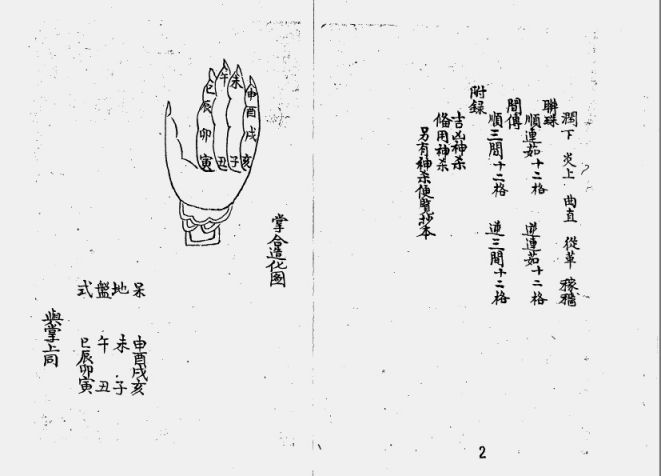 潤下 炎上 曲直 從革 稼穡
聯珠
順連茹十二格 逆連茹十二格
間傳
順三間十二格 逆三間十二格
附録
吉凶神杀
俻用神杀
另有神杀便覽抄本
2
掌合造化图
申酉戌亥
未 子
午 丑
巳辰卯寅
呆地盤式
申酉戌亥
未 子
午 丑
巳辰卯寅
與掌上同